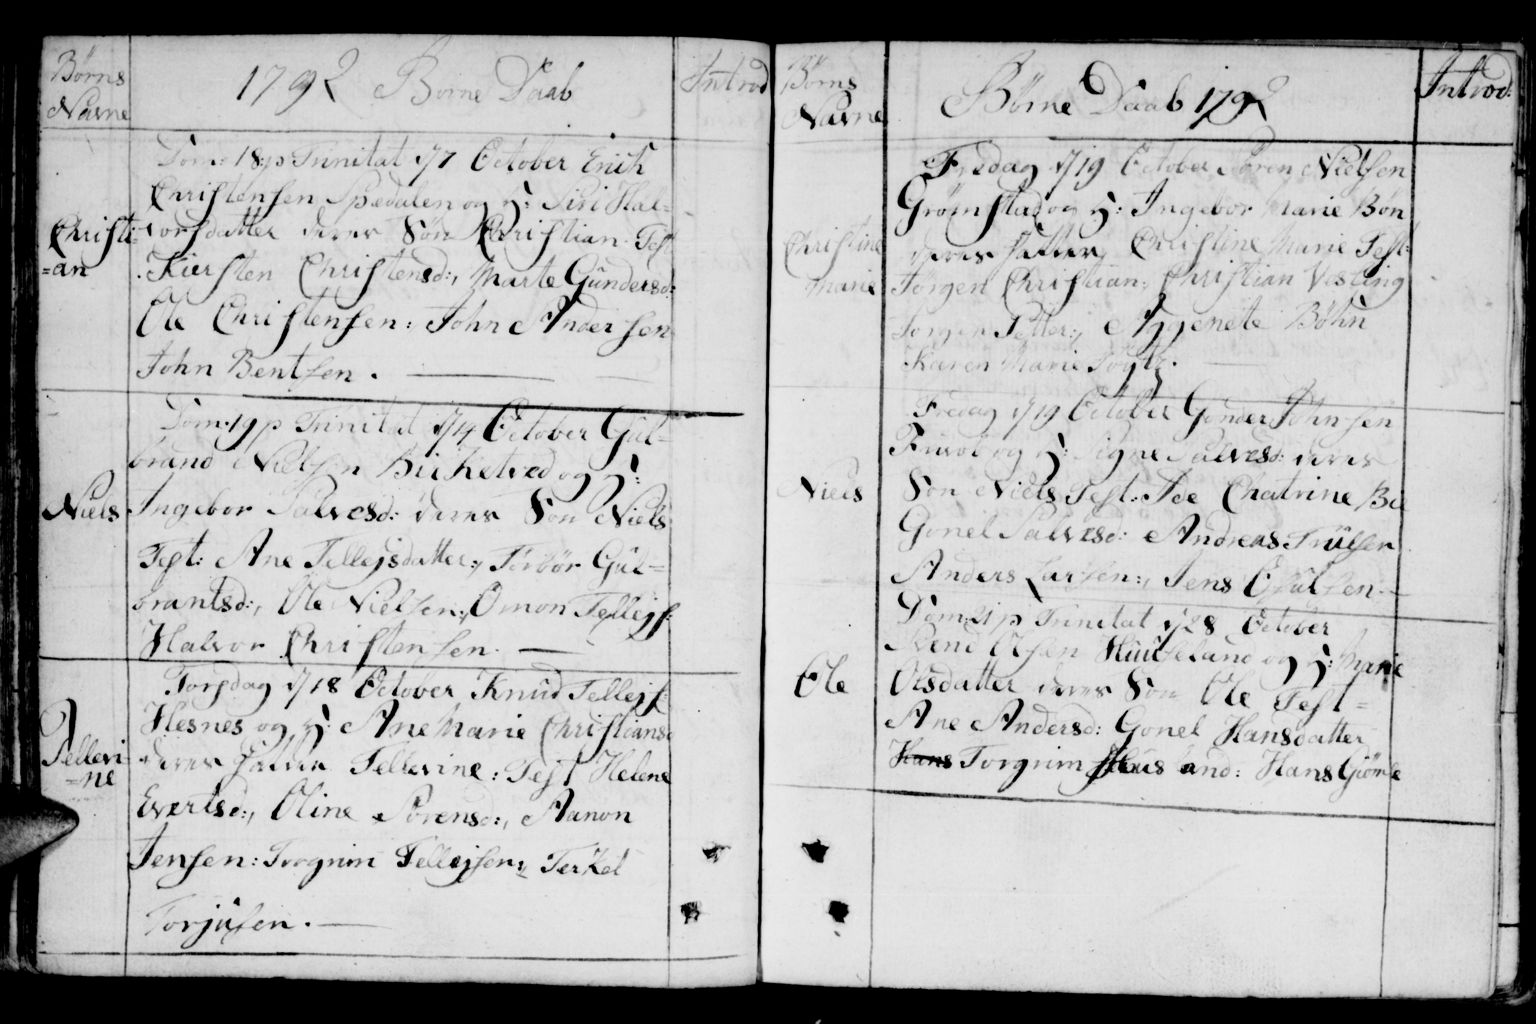 Børns
Navne
1792 Børne Daab
Introd
Christi-
=an
Dom: 18 p Trinitat d/7 October Erich
Christensen Spædalen og H: Siri Hal-
vorsdatter deres Søn Christian. Test
Kiersten Christensd:, Marte Gundersd:
Ole Christensen: John Andersen
John Bentsen.
Niels
Dom: 19 p Trinitat d/14 October Gul-
brand Nielsen Birketved og H:
Ingebor Salvesd: deres Søn Niels
Test: Ane Tellejsdatter:, Torbor Gul=
brantsd:, Ole Nielsen:, Omon Tellejs:
Halvor Christensen.
Tellevi-
=ne
Torsdag d/18 October Knud Tellejs:
Hesnes og H: Ane Marie Christiansd
deres Datter Tellevine: Test Helene
Evertsd:, Oline Sørensd:, Aanon
Jensen: Torgrim Tellejsen:, Terkel
Torjusen.
Børns
Navne
Børne Daab 1792
Introd:
Christine
Marie
Fredag d/19 October Søren Nielsen
Grømstad og H: Ingebor Marie Bøn
deres Datter Christine Marie Test:
Jørgen Christian: Christian Vesting
Jørgen Petter:, Aggenete Bøhn
Karen Marie
Niels
Fredag d/19 October Gonder Johnsen
Furøe og H: Signe Salvesd: deres
Søn Niels Test: Chatrine Bie
Gonel Salvesd: Andreas Trulsen
Anders Larsen:, Jens
Ole
Dom: 21 p Trinitat d/28 October
Svend Olsen Huuseland og H: Marie
Olsdatter deres Søn Ole Test=
Ane Andersd: Gonel Hansdatter
Hans Torgrim Huusland: Hans Giømle